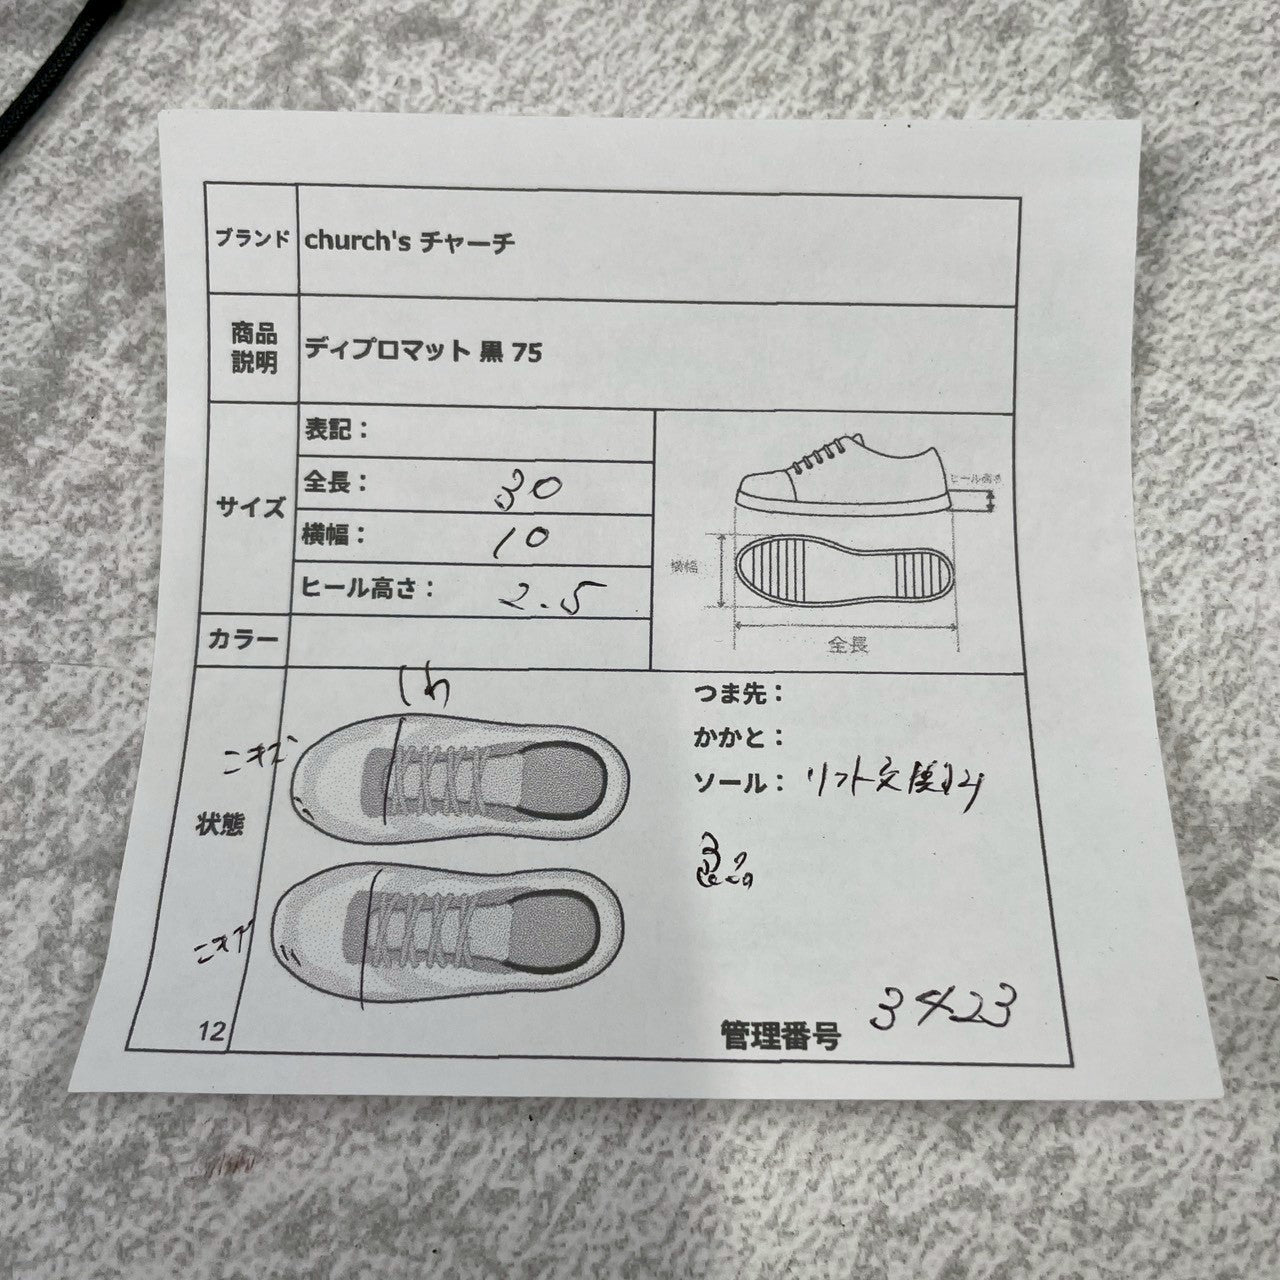 ブランド church's チャーチ
商品説明 ディプロマット 黒 75
サイズ
表記：
全長： 30
横幅： 10
ヒール高さ： 2.5
ヒール高さ
横幅
全長
カラー
状態
しわ
こキズ
こキズ
つま先：
かかと：
ソール： リフト交換済み
12
管理番号 3423